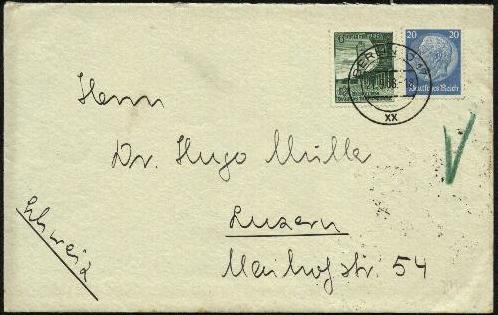 20 20
Deutsches Reich
BERLIN
XX
Herrn
Dr. Hugo Müller
Luzern
Maihofstr. 54
Schweiz